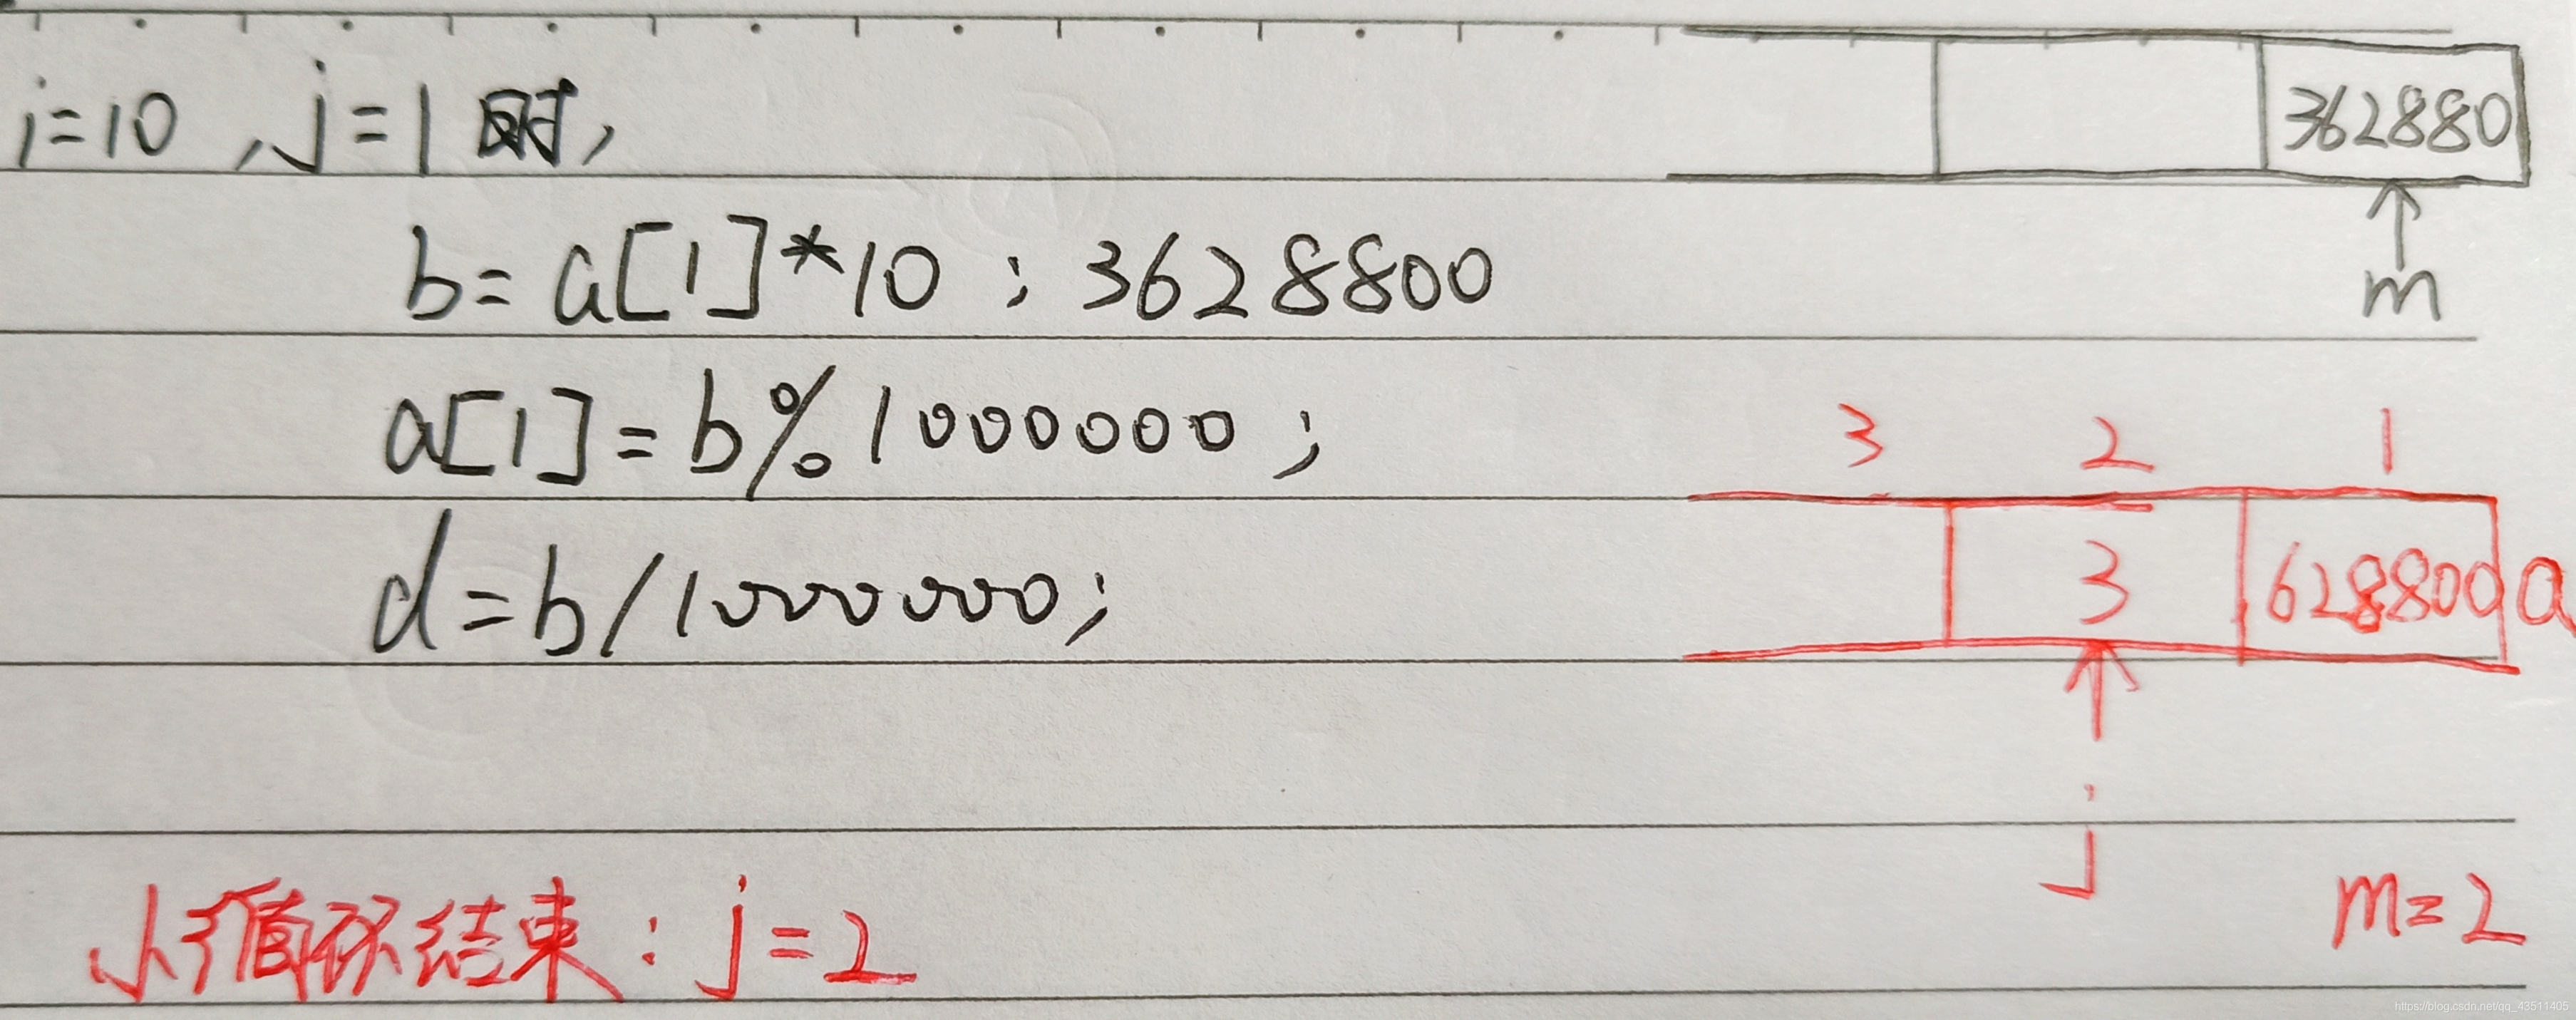 i=10 ,j=1时,
362880
m
b=a[1]*10 ; 3628800
a[1]=b%1000000;
3 2 1
d=b/1000000;
3 628800 a
j
小循环结束:j=2
m=2
https://blog.csdn.net/qq_43511405